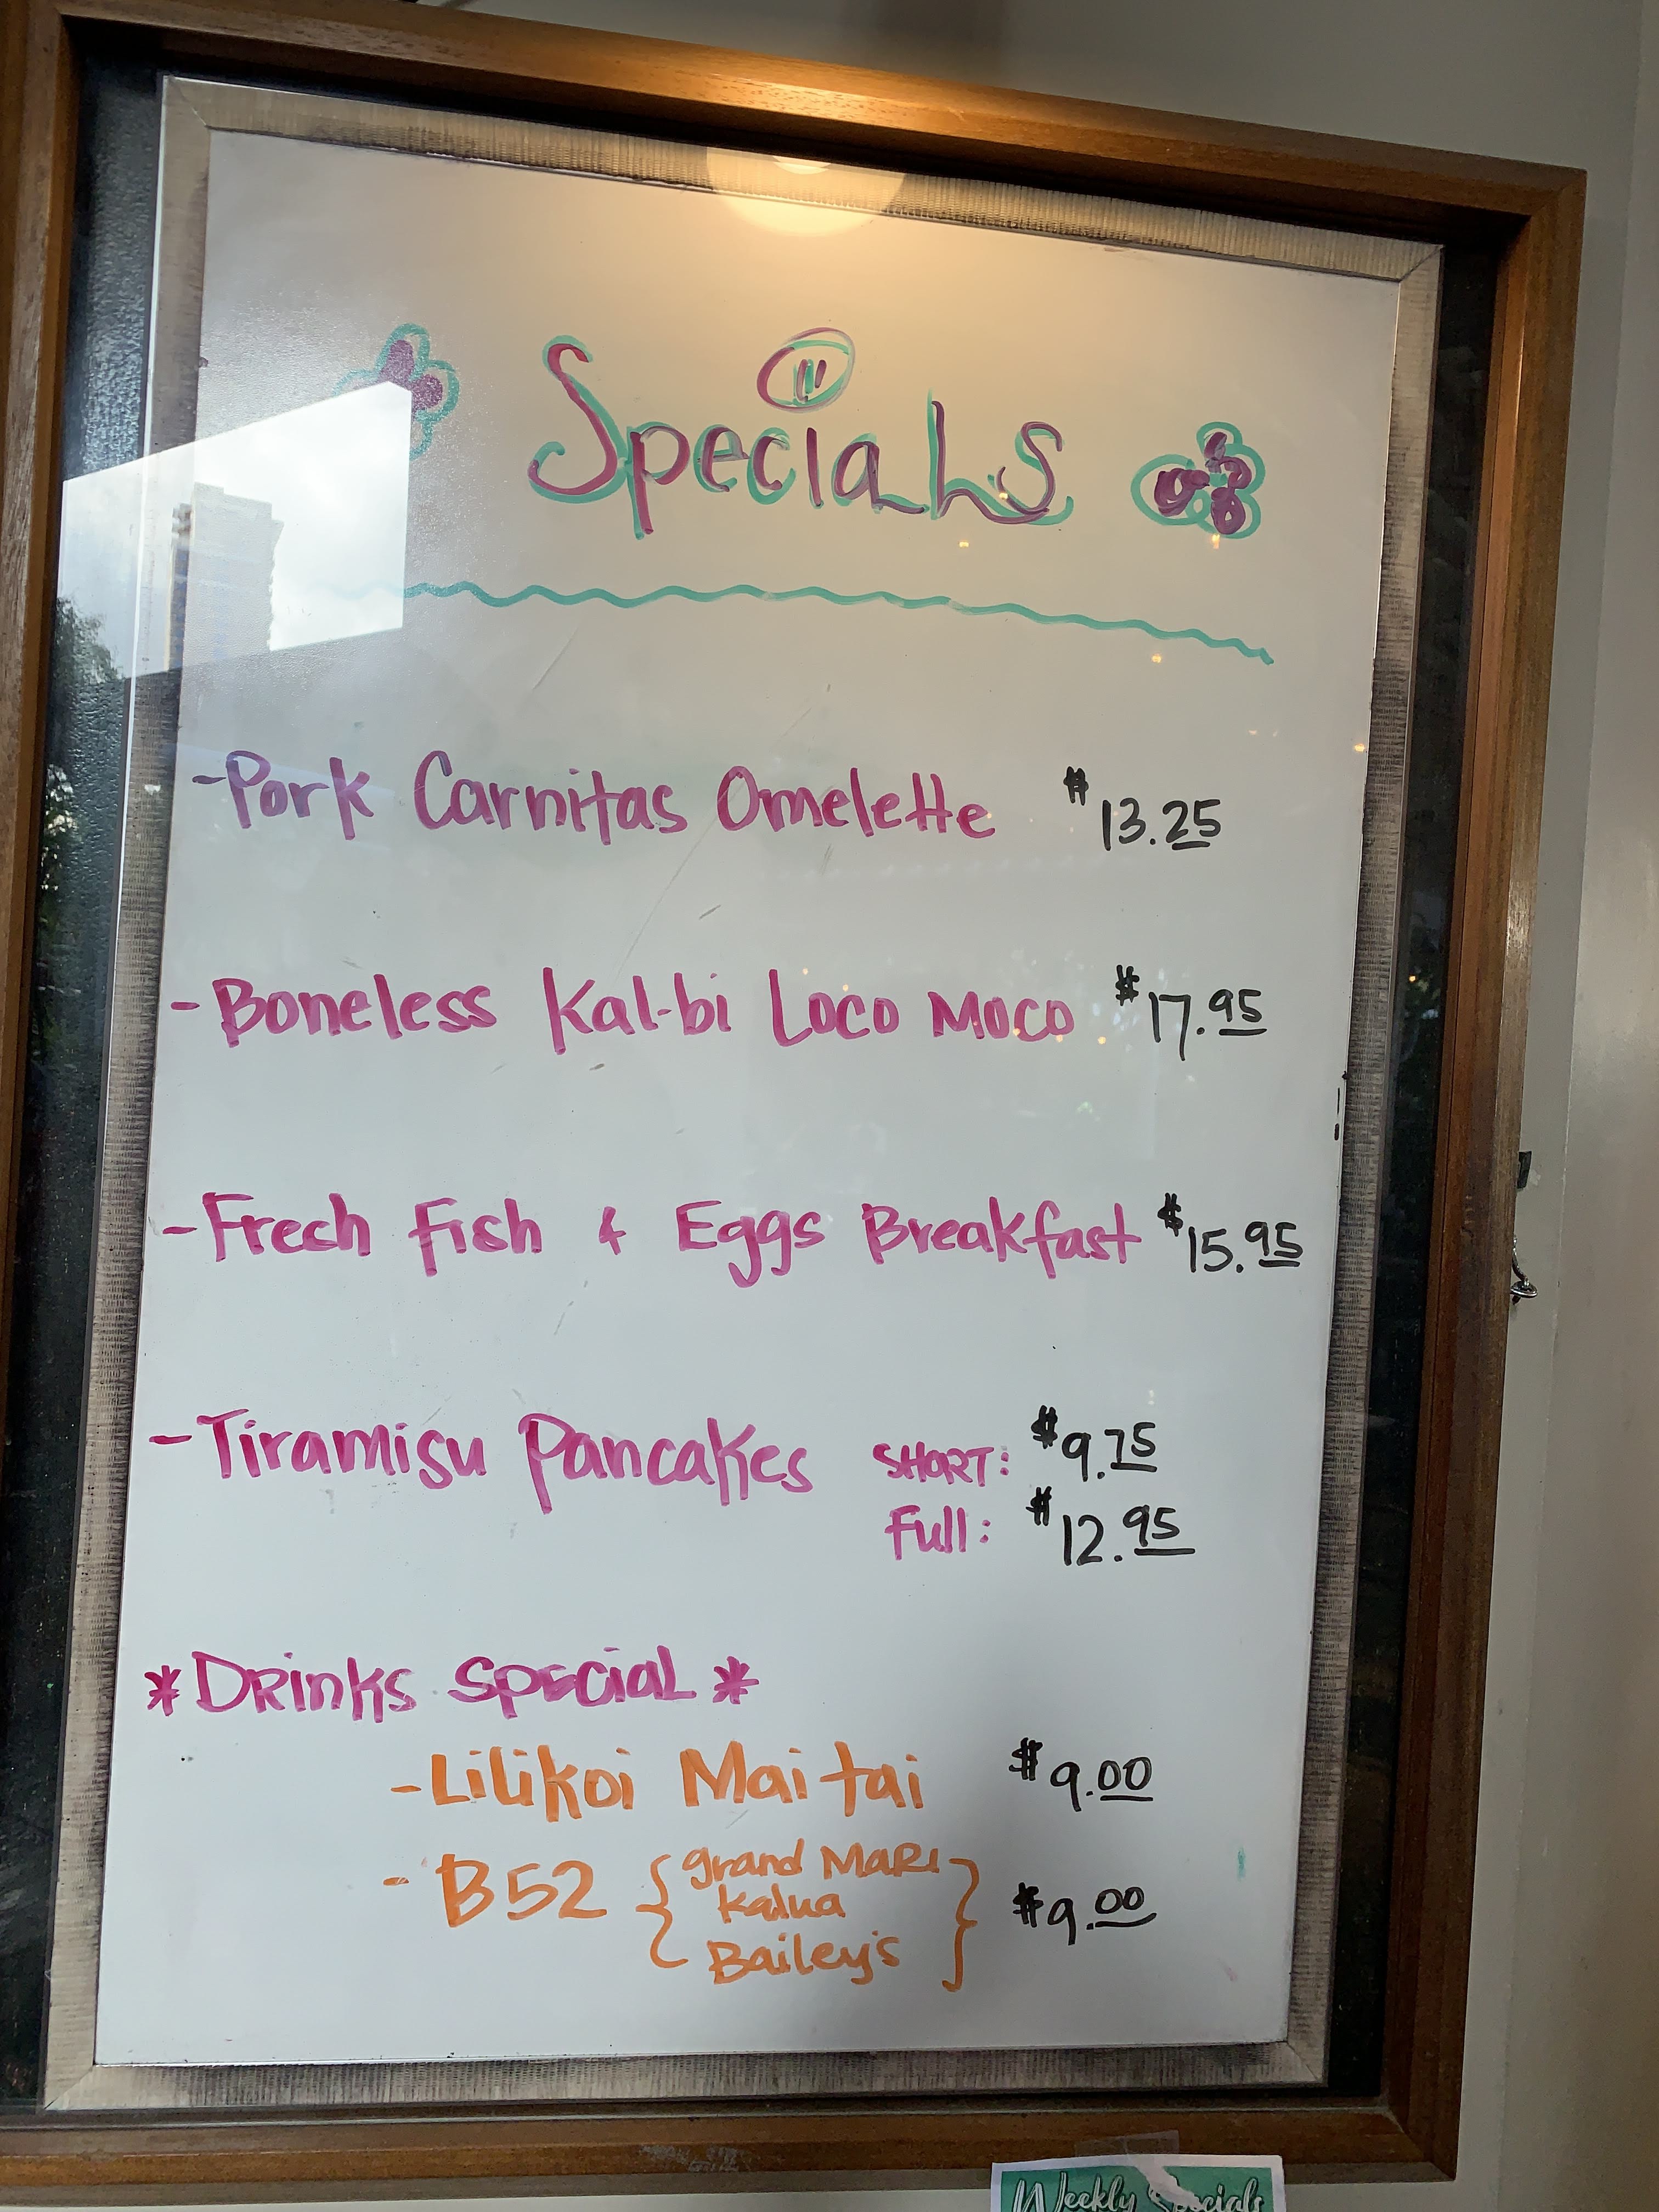 Specials
-Pork Carnitas Omelette $13.25
-Boneless Kal-bi Loco Moco $17.95
-Frech Fish & Eggs Breakfast $15.95
-Tiramisu Pancakes SHORT: $9.75
Full: $12.95
*Drinks Special*
-Lilikoi Mai tai $9.00
-B52 { grand Mari } $9.00
Kalua
Bailey's
Weekly Specials